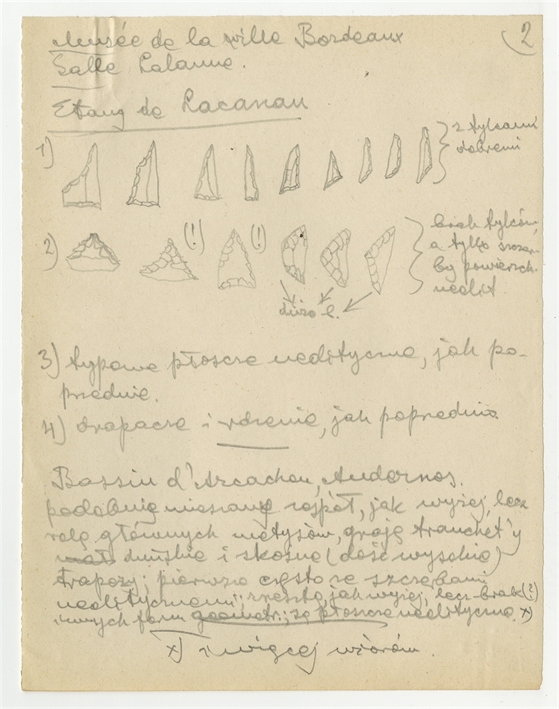 2
Musée de la ville Bordeaux
Salle Lalanne.
Etang de Lacanau
1)
z tylcami
dobremi
2)
(!)
(!)
brak tylców,
a tylko
neolit.
dużo e.
3) typowe płoszcze neolityczne, jak po-
przednie.
4) drapacze i rdzenie, jak poprednio
Bassin d'Arcachon, Andernos.
podobnie mieszany zespół, jak wyżej, lecz
rolę głównych grają tranchet'y
duńskie i skośne (dość wysokie)
trapezy; pierwsze często ze szczerbami
neolitycznemi; zresztą jak wyżej, lecz brak (?)
innych form geometr; są płoszcze neolityczne. x)
x) i więcej wiórów.